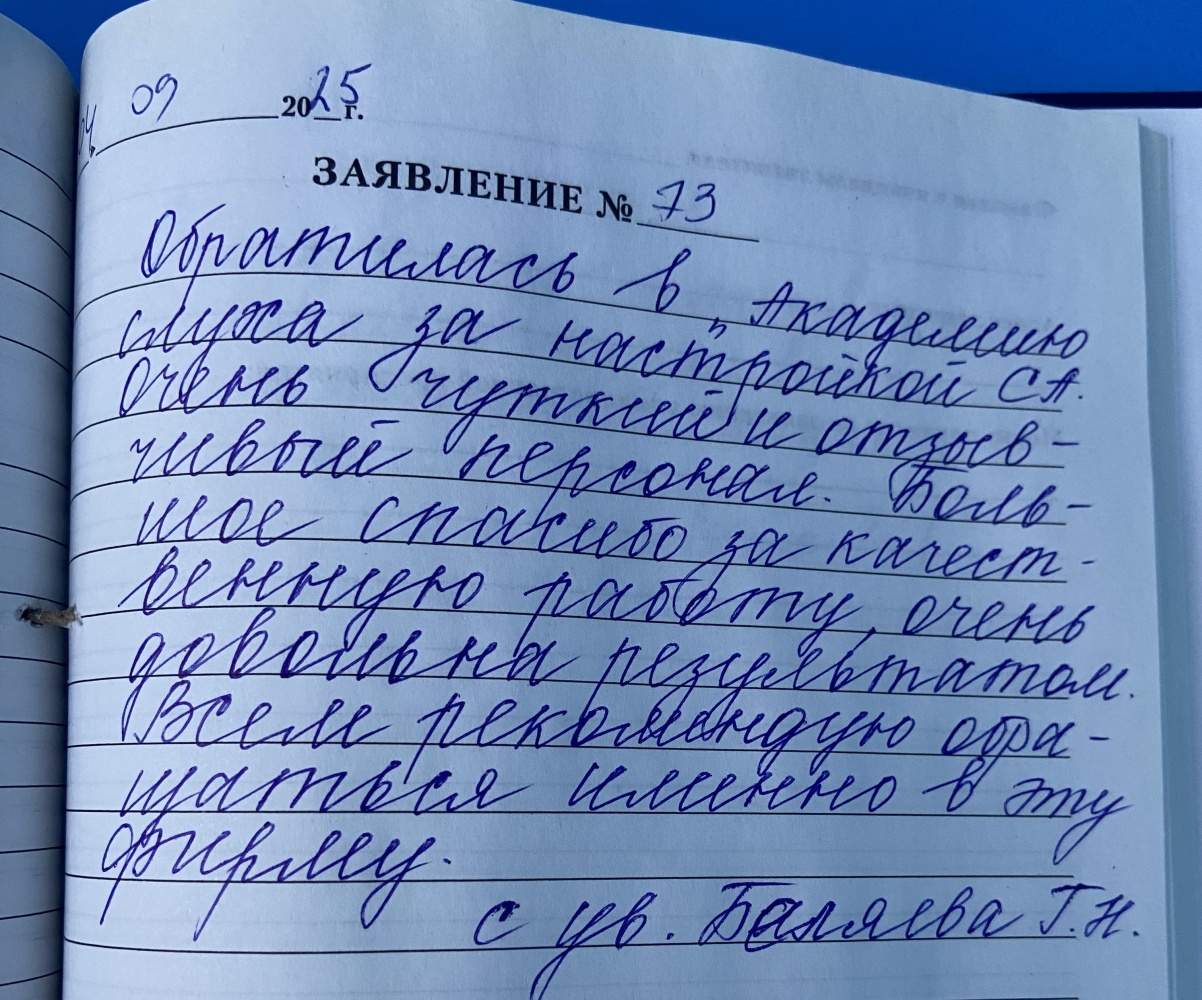 04. 09 2025 г.
ЗАЯВЛЕНИЕ № 73
Обратилась в „Академию
слуха" за настройкой СА.
Очень чуткий и отзыв-
чивый персонал. Боль-
шое спасибо за качест-
венную работу, очень
довольна результатом.
Всем рекомендую обра-
щаться именно в эту
фирму.
с ув. Баляева Г.Н.